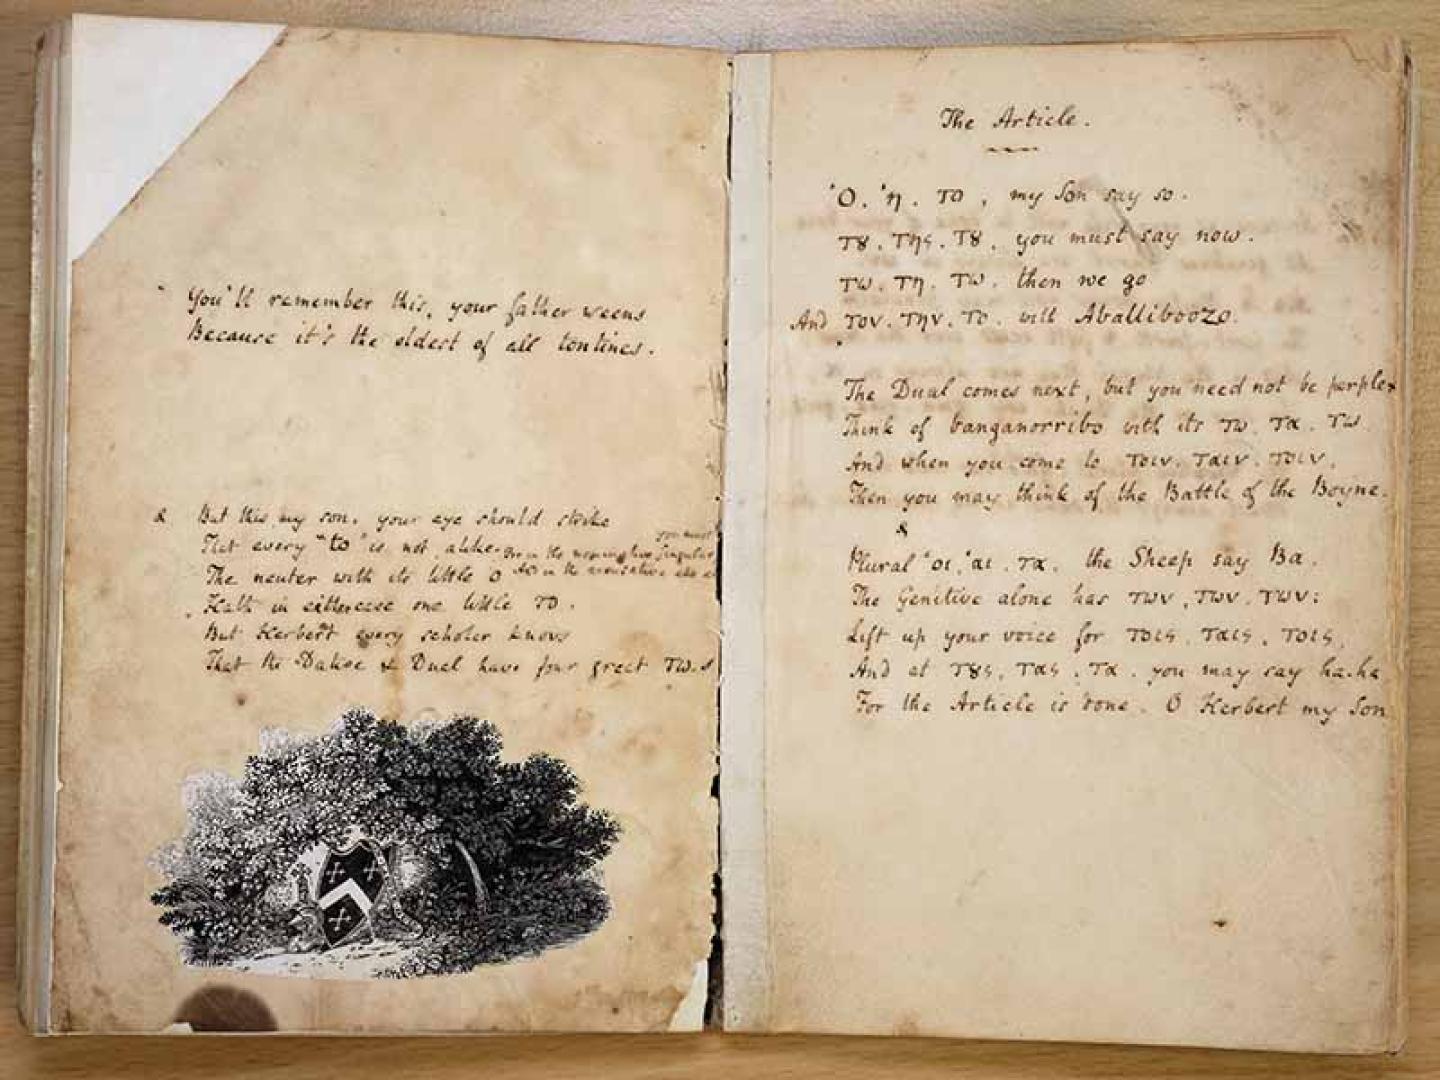 You'll remember this, your father weens
Because it's the oldest of all tontines.
& But this my son, your eye should strike
That every "to" is not alike.
you must
For in the nominative singular
The neuter with its little o
And in the accusative
Hath in either case one little το.
But Herbert every scholar knows
That the Dative & Dual have four great τω.s
The Article.
Ὁ. ἡ. το, my Son say so.
τȣ. της. τȣ, you must say now.
τω. τη. τω. then we go
And τον. την. το. with Aballiboozo.
The Dual comes next, but you need not be perplex
Think of banganorribo with its τω. τα. τω
And when you come to τοιν. ταιν. τοιν,
Then you may think of the Battle of the Boyne.
&
Plural ὁι, ἁι. τα. the Sheep say Ba.
The Genitive alone has των, των, των:
Lift up your voice for τοις, ταις, τοις,
And at τȣς, τας, τα. you may say ha-ha
For the Article is done. O Herbert my Son